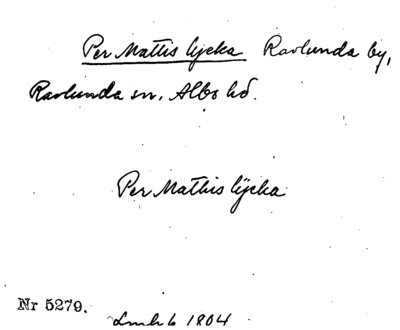 Per Mattis lycka Ravlunda by,
Ravlunda sn. Albo hd.
Per Mathis lÿcka
Nr 5279.
1804